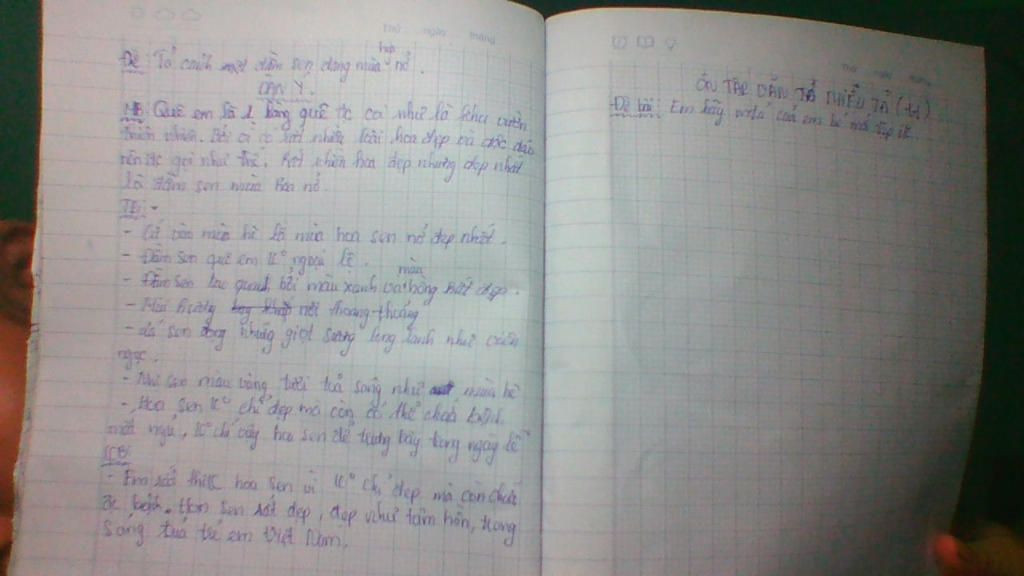 Đề: Tả cảnh một đầm sen đang mùa hoa nở.
DÀN Ý.
MB: Quê em là 1 làng quê đc coi như là khu vườn
thiên nhiên. Bởi vì có rất nhiều loài hoa đẹp và độc đáo
nên đc gọi như thế. Rất nhiều hoa đẹp nhưng đẹp nhất
là đầm sen mùa hoa nở.
TB: -
- Cứ vào mùa hè là mùa hoa sen nở đẹp nhất.
- Đầm sen quê em k° ngoại lệ.
- Đầm sen bao quanh bởi màu xanh và màu hồng rất đẹp.
- Mùi hương thoang thoảng
- Lá sen đọng những giọt sương long lanh như viên
ngọc.
- Nhị sen màu vàng tươi toả sáng như mùa hè
- Hoa sen k° chỉ đẹp mà còn có thể chữa bệnh
mất ngủ, k° chỉ vậy hoa sen để trưng bày trong ngày lễ
KB:
- Em rất thích hoa sen vì k° chỉ đẹp mà còn chữa
đc bệnh. Hoa sen rất đẹp, đẹp như tâm hồn, trong
sáng của trẻ em Việt Nam.
ÔN TẬP VĂN TẢ
Đề bài: Em hãy tả em bé mới tập